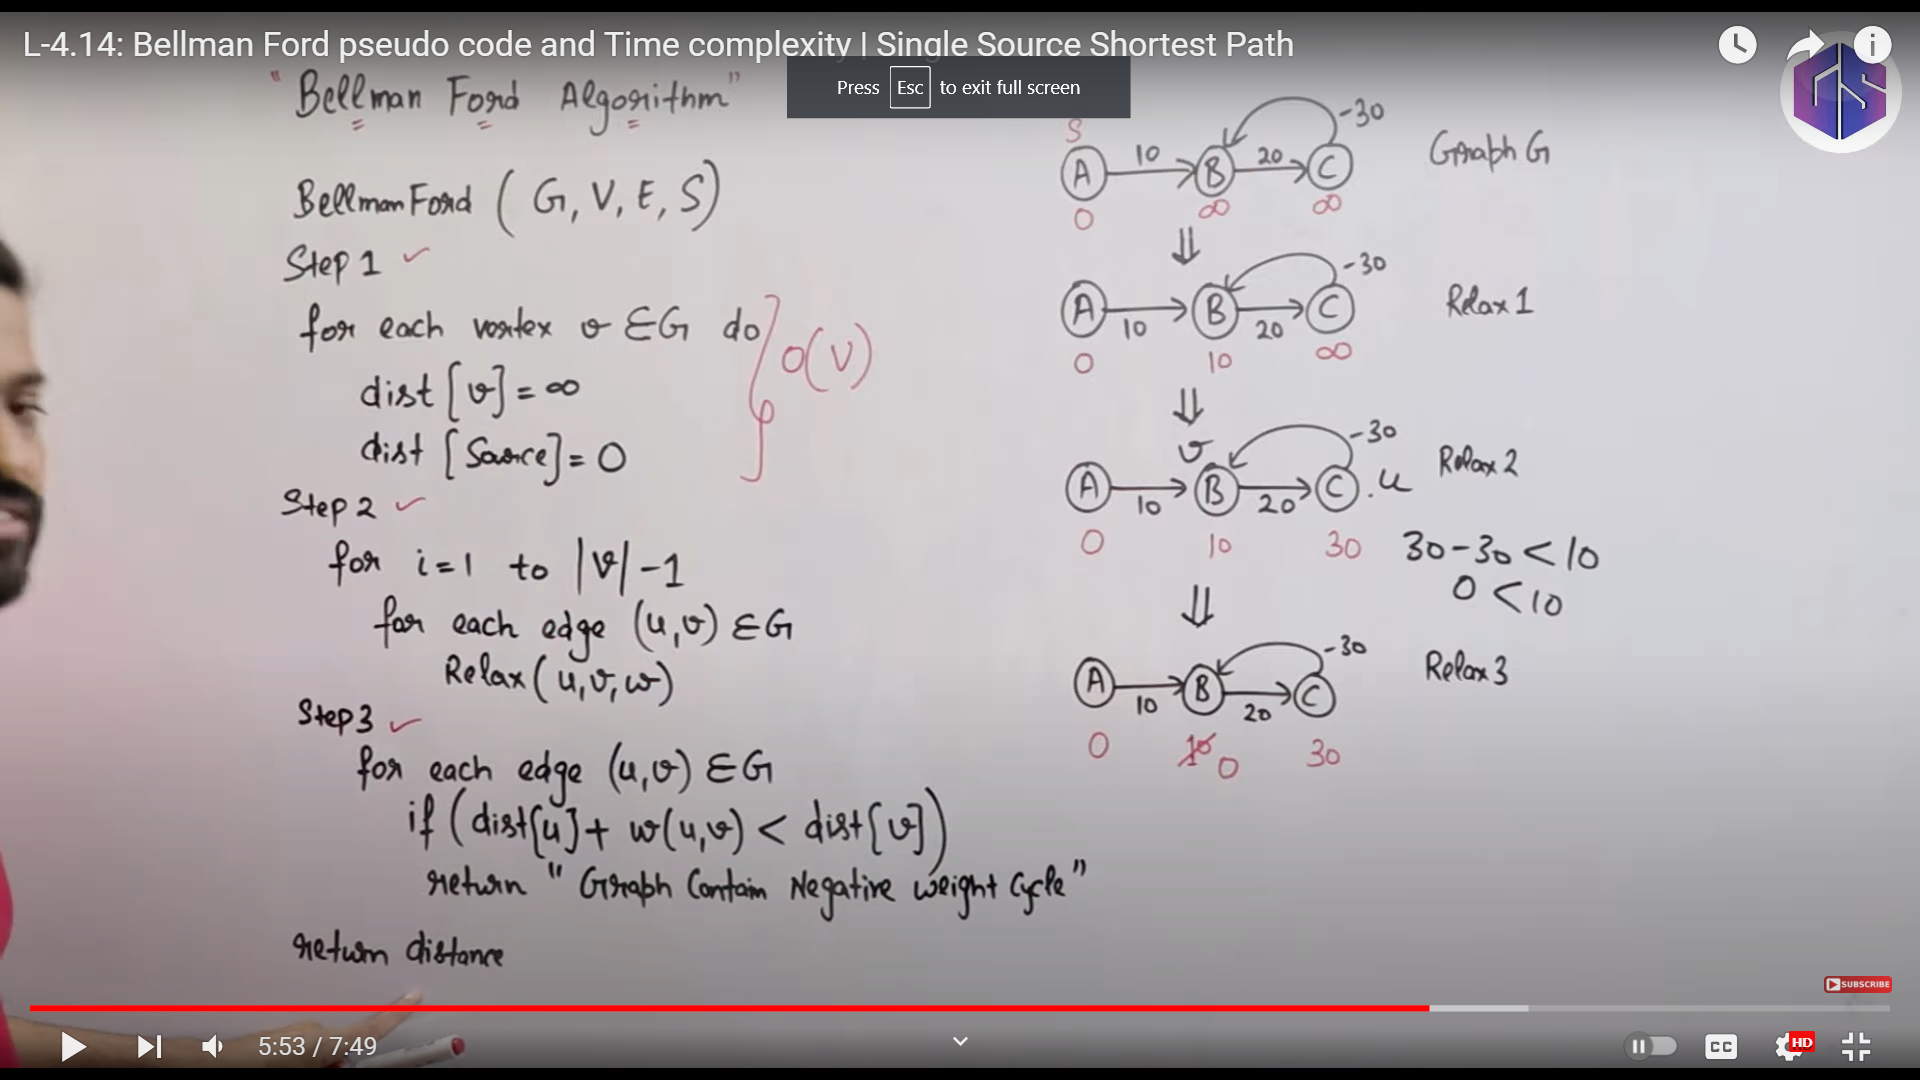 L-4.14: Bellman Ford pseudo code and Time complexity | Single Source Shortest Path
Press Esc to exit full screen
"Bellman Ford Algorithm"
BellmanFord (G, V, E, S)
Step 1 ✓
for each vertex v ∈G do
dist [v] = ∞
dist [Source] = 0
O(V)
Step 2 ✓
for i=1 to |v|-1
for each edge (u,v) ∈G
Relax(u,v,w)
Step3 ✓
for each edge (u,v) ∈G
if (dist[u]+ w(u,v) < dist[v])
return "Graph Contain Negative Weight Cycle"
return distance
S
A 10 B 20 C -30 Graph G
0 ∞ ∞
⇓
A 10 B 20 C -30 Relax 1
0 10 ∞
⇓
v
A 10 B 20 C .u -30 Relax 2
0 10 30
30-30 < 10
0 < 10
⇓
A 10 B 20 C -30 Relax 3
0 10 0 30
SUBSCRIBE
5:53 / 7:49
CC
HD